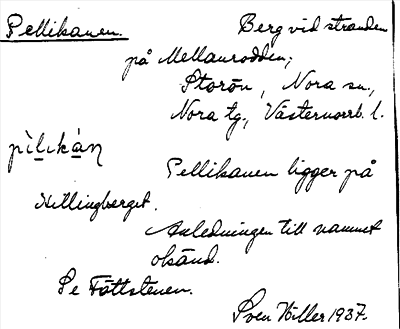 Pellikanen. Berg vid stranden
på Mellanrodden;
Storön, Nora sn.,
Nora tg., Västernorrb. l.
pìlıkàn
Pellikanen ligger på
Killingberget.
Anledningen till namnet
okänd.
Se Tättstenen.
Sven Hiller 1937.